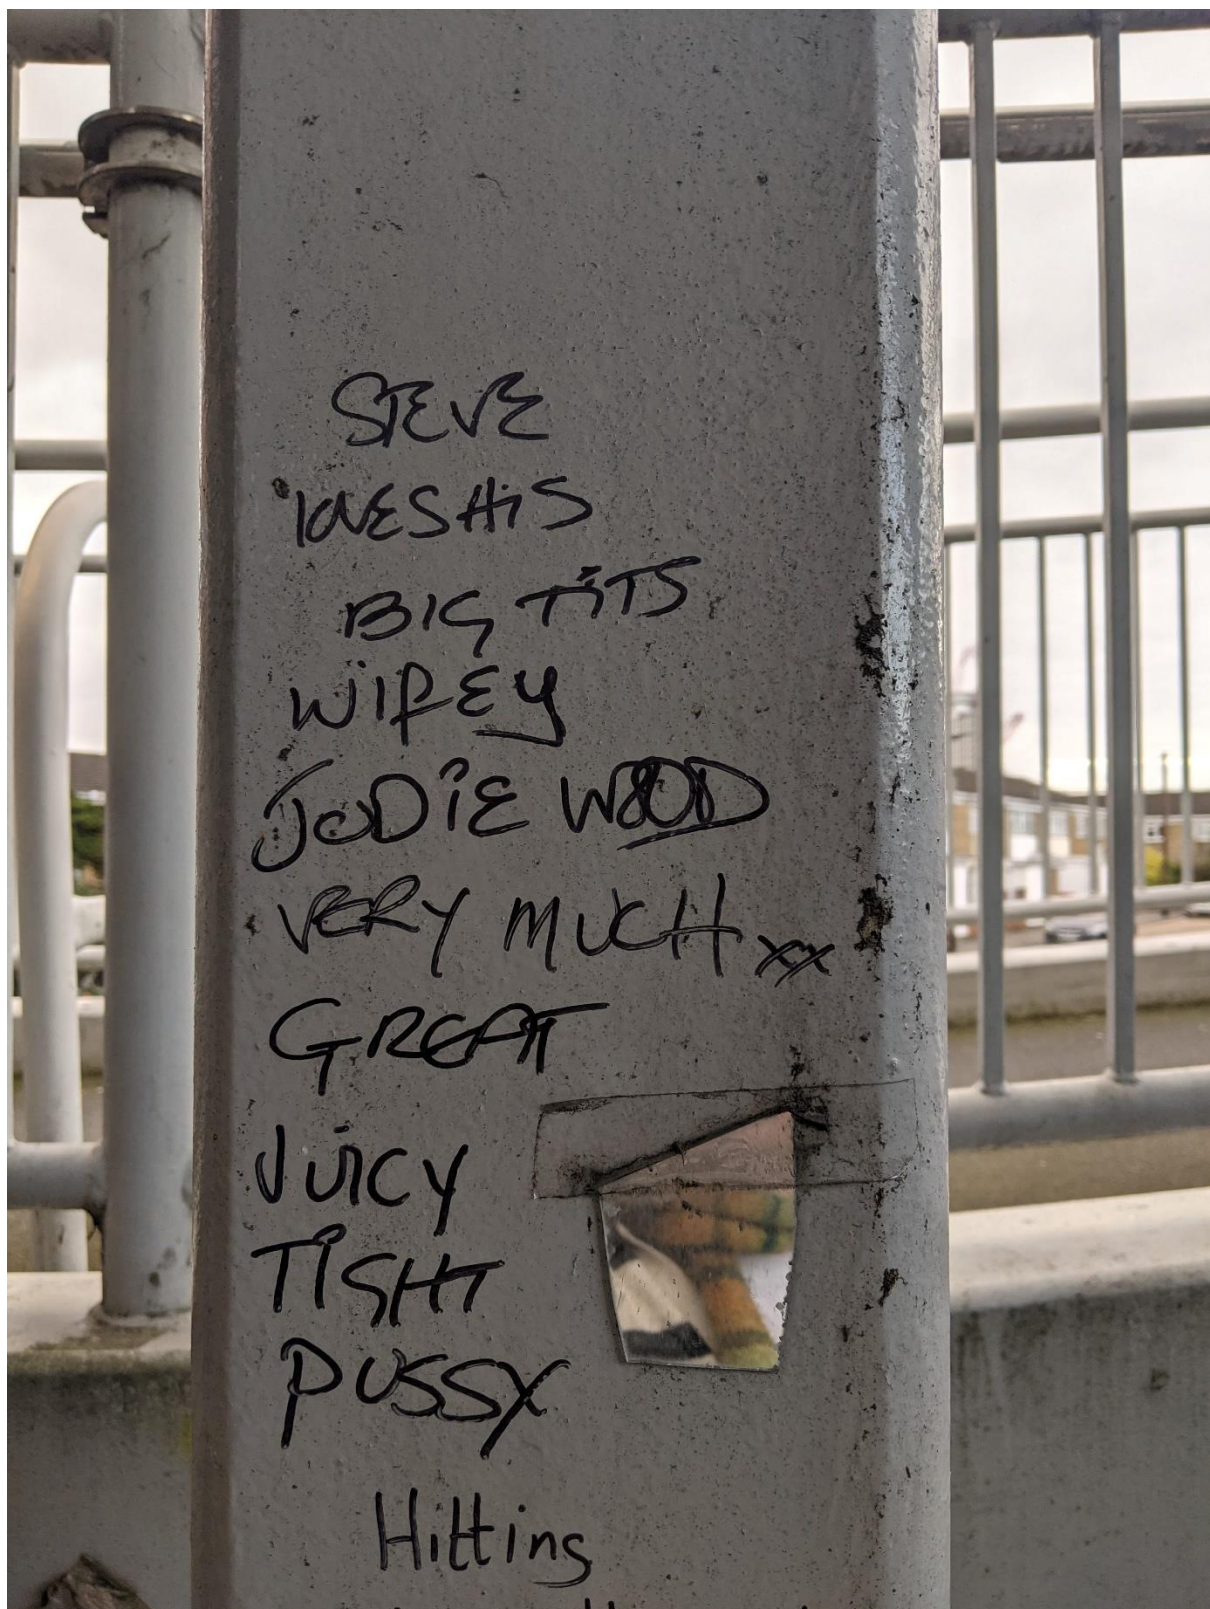 STEVE
lOVES HiS
BIG TiTS
WiFEy
JODiE WOOD
VERY MUCH xx
GREAT
JUiCY
TIGHT
PUSSY
Hitting